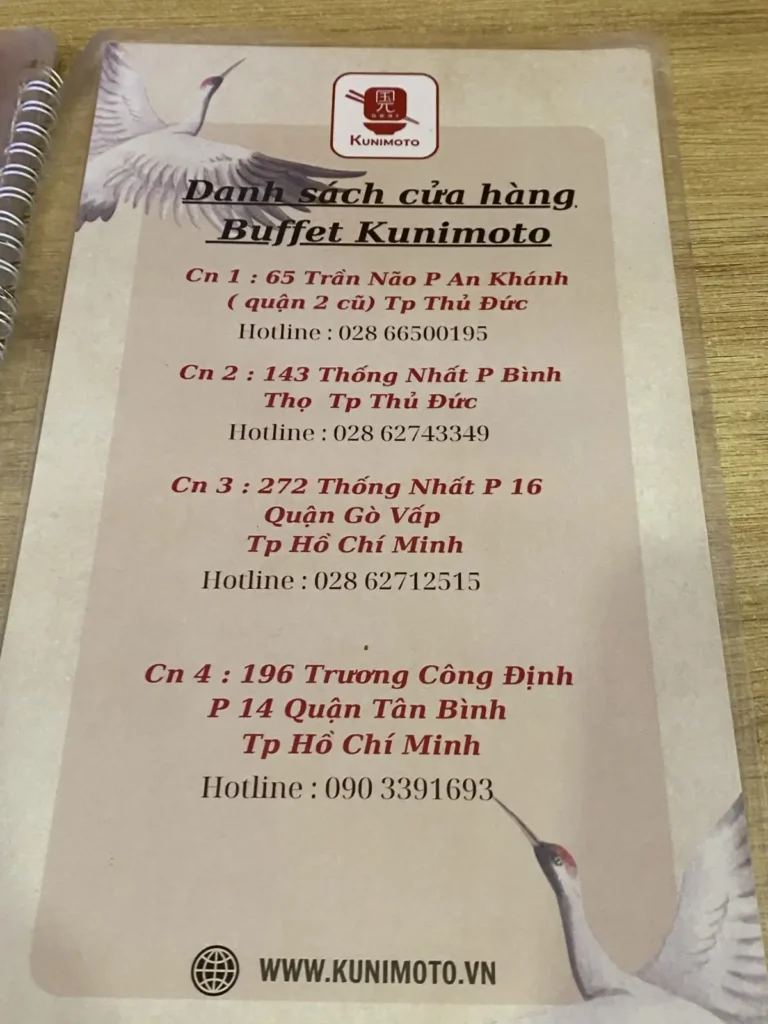 国元
KUNIMOTO
Danh sách cửa hàng
Buffet Kunimoto
Cn 1 : 65 Trần Não P An Khánh
( quận 2 cũ) Tp Thủ Đức
Hotline : 028 66500195
Cn 2 : 143 Thống Nhất P Bình
Thọ Tp Thủ Đức
Hotline : 028 62743349
Cn 3 : 272 Thống Nhất P 16
Quận Gò Vấp
Tp Hồ Chí Minh
Hotline : 028 62712515
Cn 4 : 196 Trương Công Định
P 14 Quận Tân Bình
Tp Hồ Chí Minh
Hotline : 090 3391693
WWW.KUNIMOTO.VN